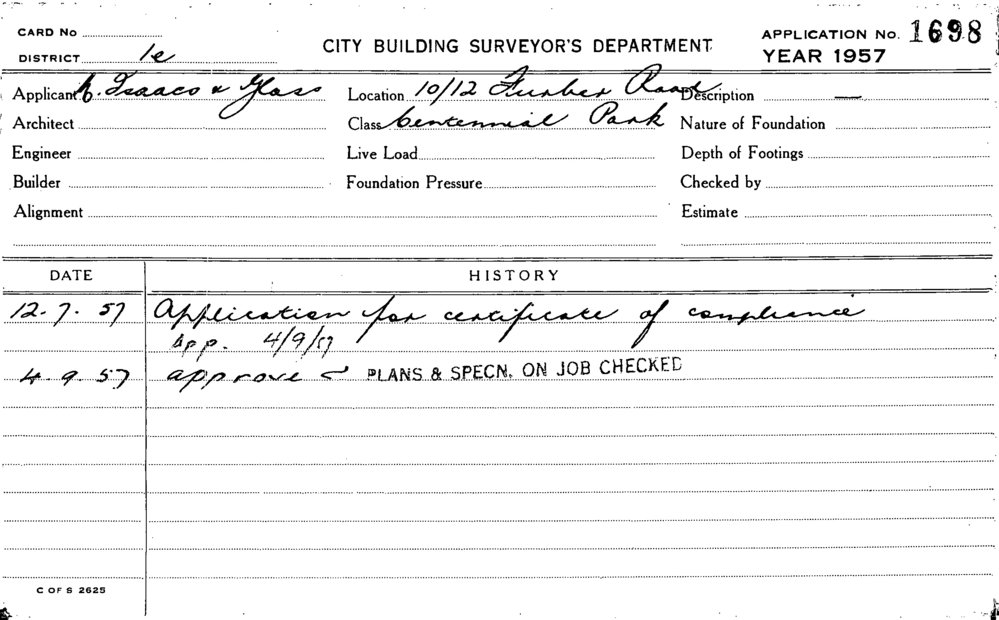 CARD No
APPLICATION No. 1698
DISTRICT 1e
CITY BUILDING SURVEYOR'S DEPARTMENT
YEAR 1957
Applicant Isaacs & Glass
Location 10/12 Furber Road
Description —
Architect
Class Centennial Park
Nature of Foundation
Engineer
Live Load
Depth of Footings
Builder
Foundation Pressure
Checked by
Alignment
Estimate
DATE
HISTORY
12.7.57 Application for certificate of compliance
App. 4/9/57
4.9.57 approve PLANS & SPECN. ON JOB CHECKED
C OF S 2625